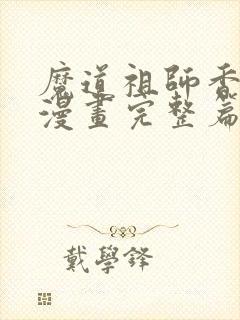 魔道祖師香
漫畫完整篇
戴學鋒